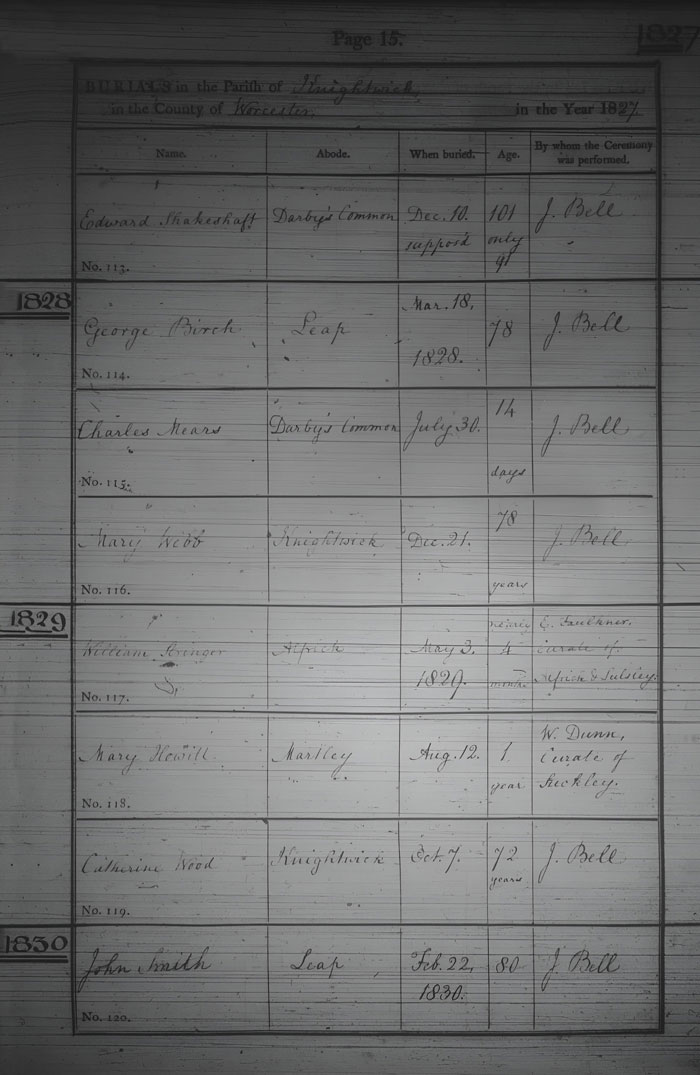 Page 15.
1827
BURIALS in the Parish of Knightwick,
in the County of Worcester, in the Year 1827
Name. Abode. When buried. Age. By whom the Ceremony was performed.
Edward Shakeshaft Darby's Common Dec. 10. 101 J. Bell
suppos'd only
91
No. 113.
1828
Mar. 18,
George Birch Leap 78 J. Bell
1828.
No. 114.
14
Charles Mears Darby's Common July 30. J. Bell
days
No. 115.
78
Mary Webb Knightwick Dec. 21. J. Bell
years
No. 116.
1829
nearly E. Faulkner,
William Stringer Alfrick May 3. 4 Curate of
1829. months Alfrick & Lulsley.
No. 117.
W. Dunn,
Mary Howill Martley Aug. 12. 1 Curate of
year Suckley.
No. 118.
Catherine Wood Knightwick Oct. 7. 72 J. Bell
years
No. 119.
1830
John Smith Leap Feb. 22, 80 J. Bell
1830.
No. 120.